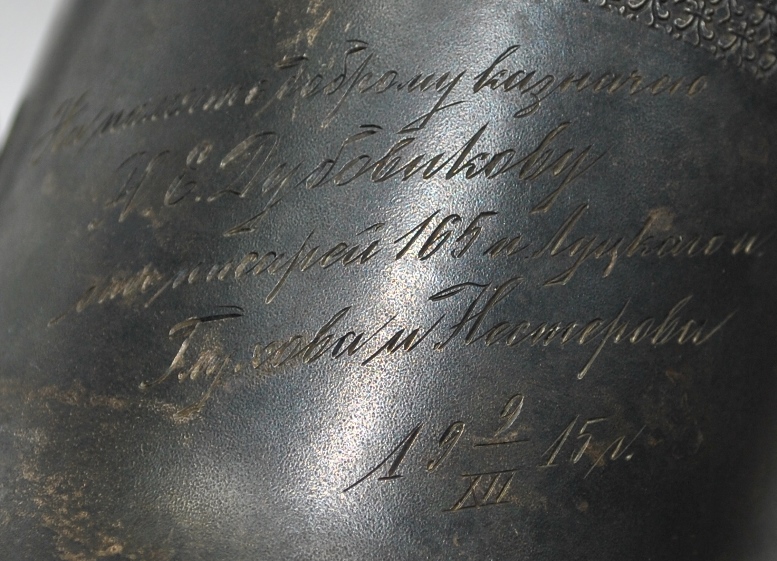 На память доброму казначею
Н Е. Дубовикову
отъ писарей 165 п. Луцкаго п.
и Нестерова
19 9/XII 15 г.